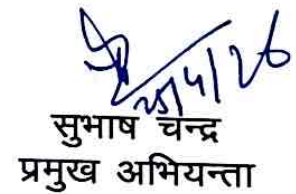 25/4/26
सुभाष चन्द्र
प्रमुख अभियन्ता